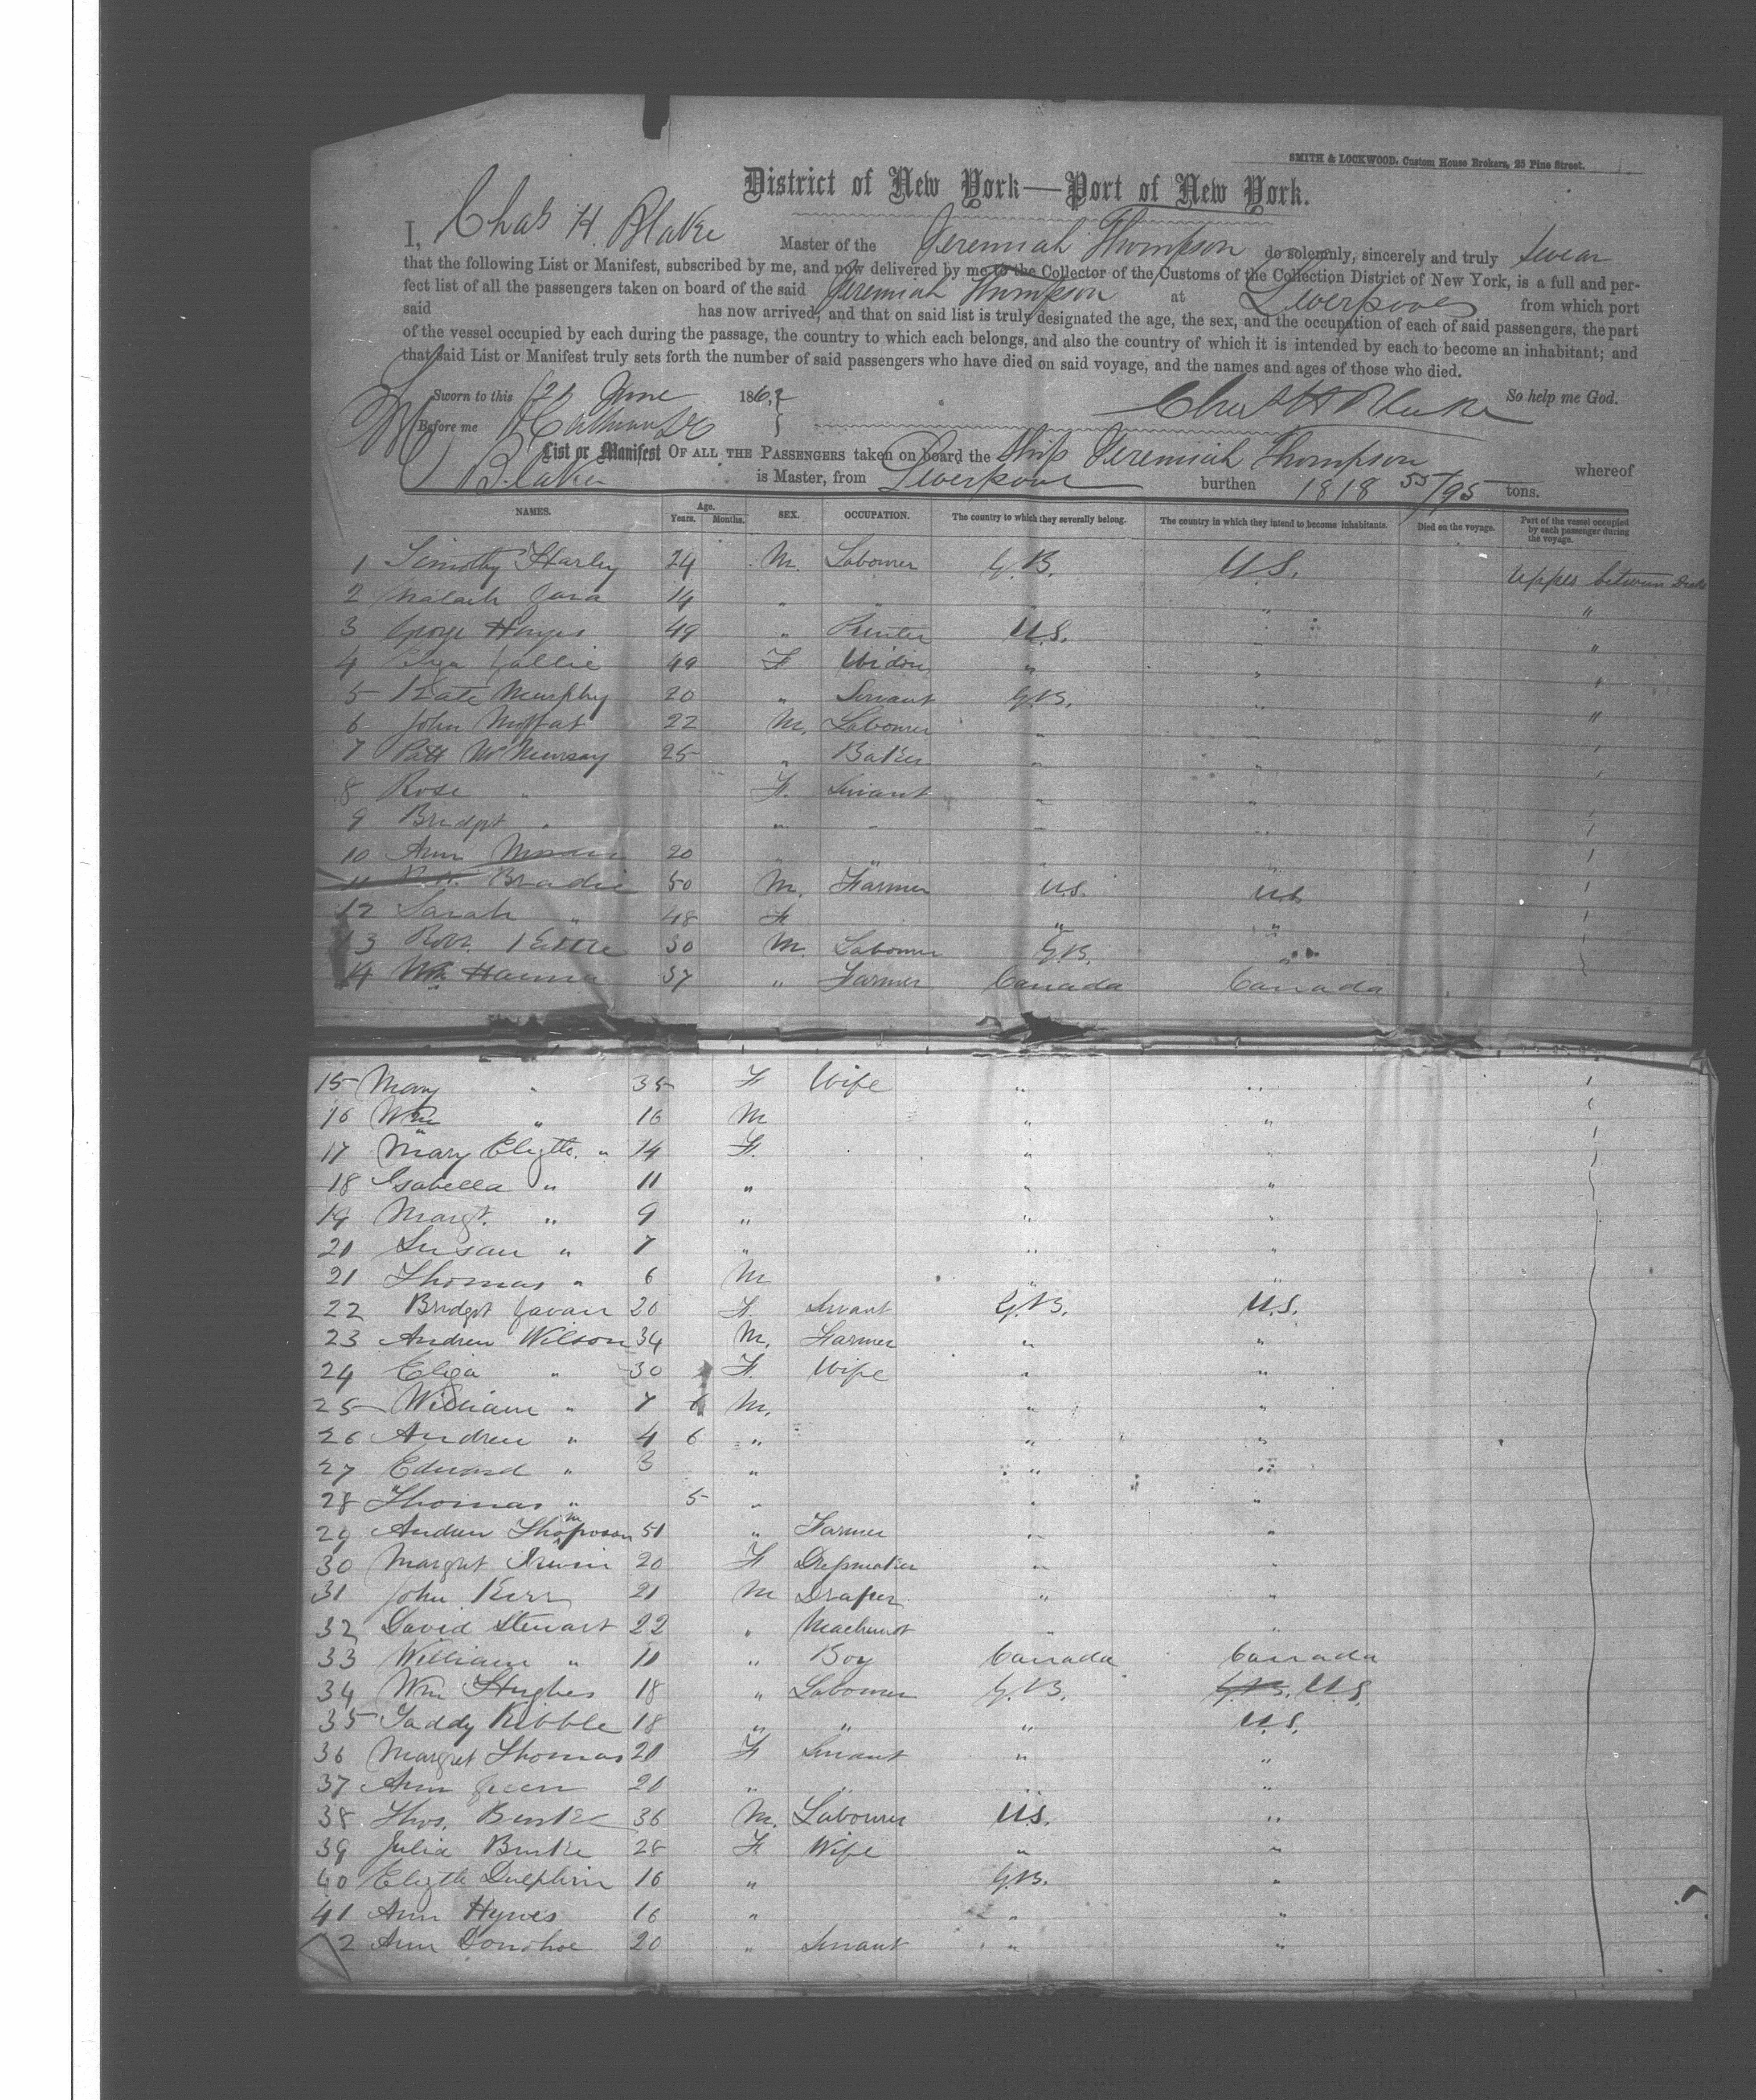 SMITH & LOCKWOOD, Custom House Brokers, 25 Pine Street.
District of New York—Port of New York.
I, Chas H. Blake Master of the Jeremiah Thompson do solemnly, sincerely and truly swear
that the following List or Manifest, subscribed by me, and now delivered by me to the Collector of the Customs of the Collection District of New York, is a full and per-
fect list of all the passengers taken on board of the said Jeremiah Thompson at Liverpool from which port
said has now arrived; and that on said list is truly designated the age, the sex, and the occupation of each of said passengers, the part
of the vessel occupied by each during the passage, the country to which each belongs, and also the country of which it is intended by each to become an inhabitant; and
that said List or Manifest truly sets forth the number of said passengers who have died on said voyage, and the names and ages of those who died.
Sworn to this 21 June 1862 Chas H Blake So help me God.
Before me
List or Manifest OF ALL THE PASSENGERS taken on board the Ship Jeremiah Thompson whereof
Blake is Master, from Liverpool burthen 1818 55/95 tons.
NAMES. Age. Years. Months. SEX. OCCUPATION. The country to which they severally belong. The country in which they intend to become inhabitants. Died on the voyage. Part of the vessel occupied by each passenger during the voyage.
1 Timothy Harley 24 M. Labourer G.B. U.S. Upper between Decks
2 14 " " " "
3 George Hayes 49 " U.S. " "
4 49 F Widow " " "
5 Kate Murphy 20 " Servant G.B. " "
6 John Moffat 22 M. Labourer " " "
7 Patt McMurray 25 " Baker " "
8 Rose " F. Servant " "
9 Bridget " " " " "
10 Ann 20 " " " "
11 Bradie 50 M. Farmer U.S. U.S.
12 Sarah " 48 F " "
13 Robt. 30 M. Labourer G.B. "
14 Wm Hanna 37 " Farmer Canada Canada
15 Mary " 35 F Wife " "
16 Wm " 16 M " "
17 Mary Elizth. " 14 F. " "
18 Isabella " 11 " " "
19 Margt. " 9 " " "
20 Susan " 7 " " "
21 Thomas " 6 M " "
22 Bridget Gavan 20 F. Servant G.B. U.S.
23 Andrew Wilson 34 M. Farmer " "
24 Eliza " 30 F. Wife " "
25 William " 7 M. " "
26 Andrew " 4 6 " " "
27 Edward " 3 " " "
28 Thomas " 5 " " "
29 Andrew Thompson 51 " Farmer " "
30 Margret Irwin 20 F Dressmaker " "
31 John Kerr 21 M Draper " "
32 David Stewart 22 " Machinist " "
33 William " 11 " Boy Canada Canada
34 Wm Hughes 18 " Labourer G.B. G.B. U.S.
35 Taddy Kibble 18 " " " U.S.
36 Margret Thomas 21 F Servant " "
37 Ann 20 " " " "
38 Thos. Burke 36 M. Labourer U.S. "
39 Julia Burke 28 F Wife " "
40 Elizth Dulphin 16 " G.B. "
41 Ann Hynes 16 " " "
2 Ann Donohoe 20 " Servant " "